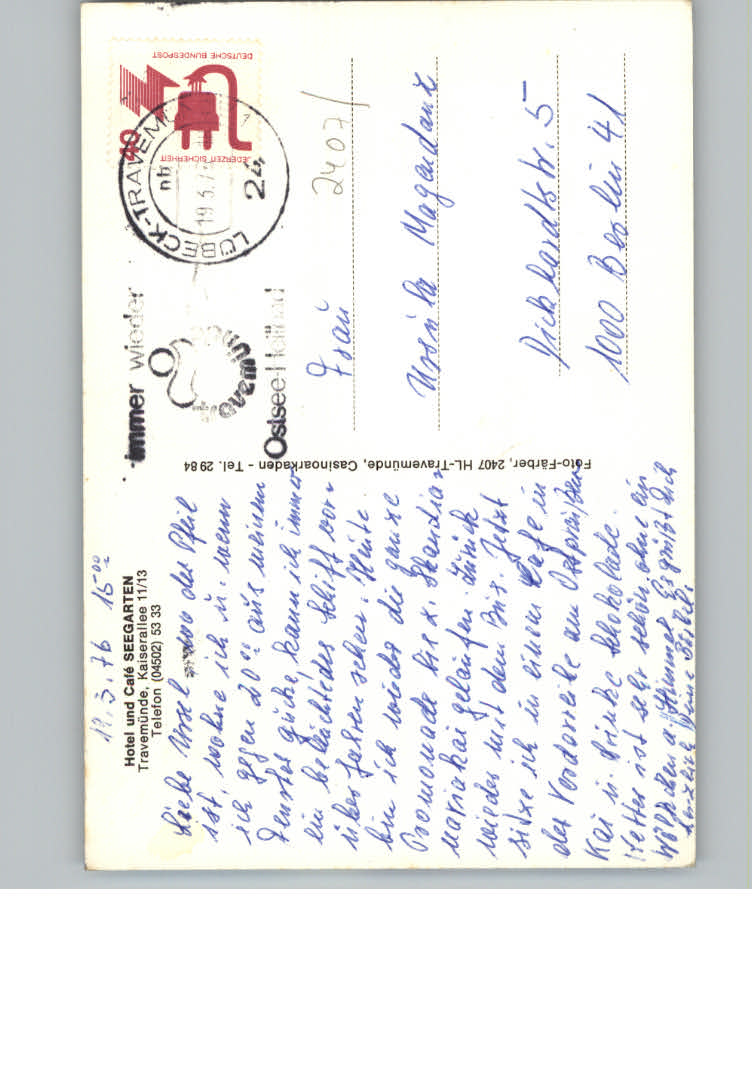 19.3.76 15⁰⁰
Hotel und Café SEEGARTEN
Travemünde, Kaiserallee 11/13
Telefon (04502) 53 33
Liebe Ursel wo der Pfeil
ist, wohne ich u. wenn
ich gegen 20⁰⁰ aus meinem
Fenster gucke, kann ich immer
ein beleuchtetes Schiff vor-
überfahren sehen. Heute
bin ich wieder die ganze
Promenade bis z. Skandina
naviakai gelaufen. Zurück
wieder mit dem Bus. Jetzt
sitze ich in einem Cafe in
der Vorderreihe am Ostpreußen
Kai u. trinke Schokolade.
Wetter ist sehr schön ohne ein
Wölkchen a. Himmel. Es grüßt Dich
herzlich Deine
Foto-Färber, 2407 HL-Travemünde, Casinoarkaden - Tel. 29 84
immer wieder
Travemünde
Ostsee-Heilbad
LÜBECK-TRAVEMÜNDE
19.3.7
nb
24
DEUTSCHE BUNDESPOST
JEDERZEIT SICHERHEIT
40
2407/
Frau
Ursula Magerdanz
Dickhardtstr. 5
1000 Berlin 41